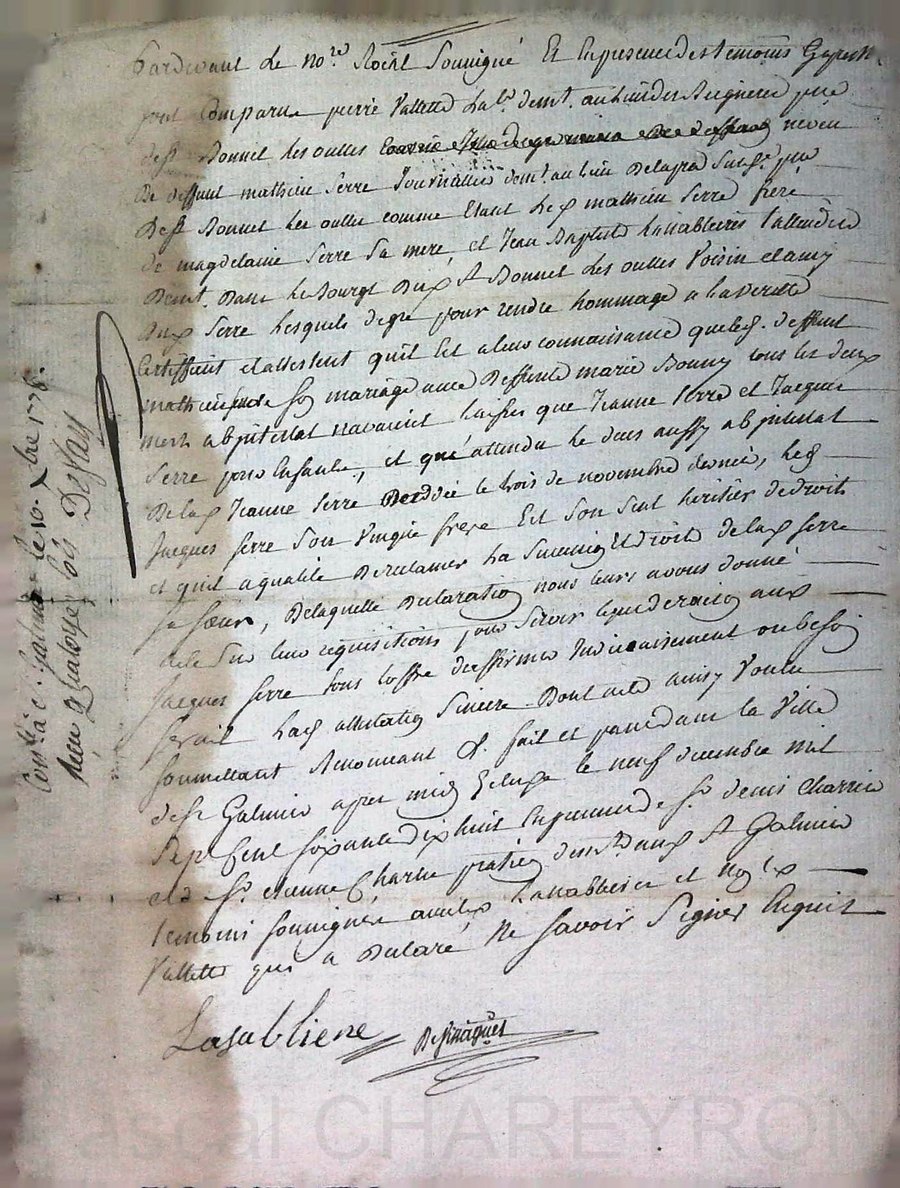 Pardevant le no.re Roial soussigné Et en presence des temoins
sont Comparu pierre Vallette
de st Bonnet les oulles neveu
de deffunt mathieu Serre Journallier dem.t au lieu
de st Bonnet les oulles comme Etant led mathieu Serre frere
de magdelaine Serre Sa mere, et Jean Baptiste
Dem.t Dans Le Bourg Dud St Bonnet Les oulles Voisin et amy
dud Serre Lesquels de gré pour rendre hommage a la verité
Certiffient et attestent qu'il est a leur connaissance que led. deffunt
mathieu Serre de son mariage avec Deffunte marie Bonny tous les deux
mort ab intestat n'avoient laissé que Jeanne Serre et Jacques
Serre pour Enfants, et que attendu le deces aussy ab intestat
De lad Jeanne Serre le trois de novembre dernié, led
Jacques Serre Son Unique frere Est Son Seul heritier de droit
et qu'il a qualité De reclamer La Succession Et droits de lad Serre
Sa Soeur, De laquelle Declaration nous leurs avons donné
acte Sur leur requisitions pour Servir que de raison aud
Jacques Serre Sous l'offre d'affirmer ou besoin
Serait Lad attestation Sincere. Dont acte ainsy Voulu
Soumettant Renonceant &. fait et passé dans la Ville
de St Galmier apres midy le neuf decembre mil
Sept Cent soixante dix huit En presence de Sr. denis Charrin
et de Sr. etienne praticien dem.t aud St Galmier
temoins soussignés avec led et non led
Vallette qui a Declaré Ne Savoir Signer Enquis
Lasabliere
Con.lé à St Galmier le 10. Xbre 1778.
Reçu quatorze sols Defay
Pascal CHAREYRON